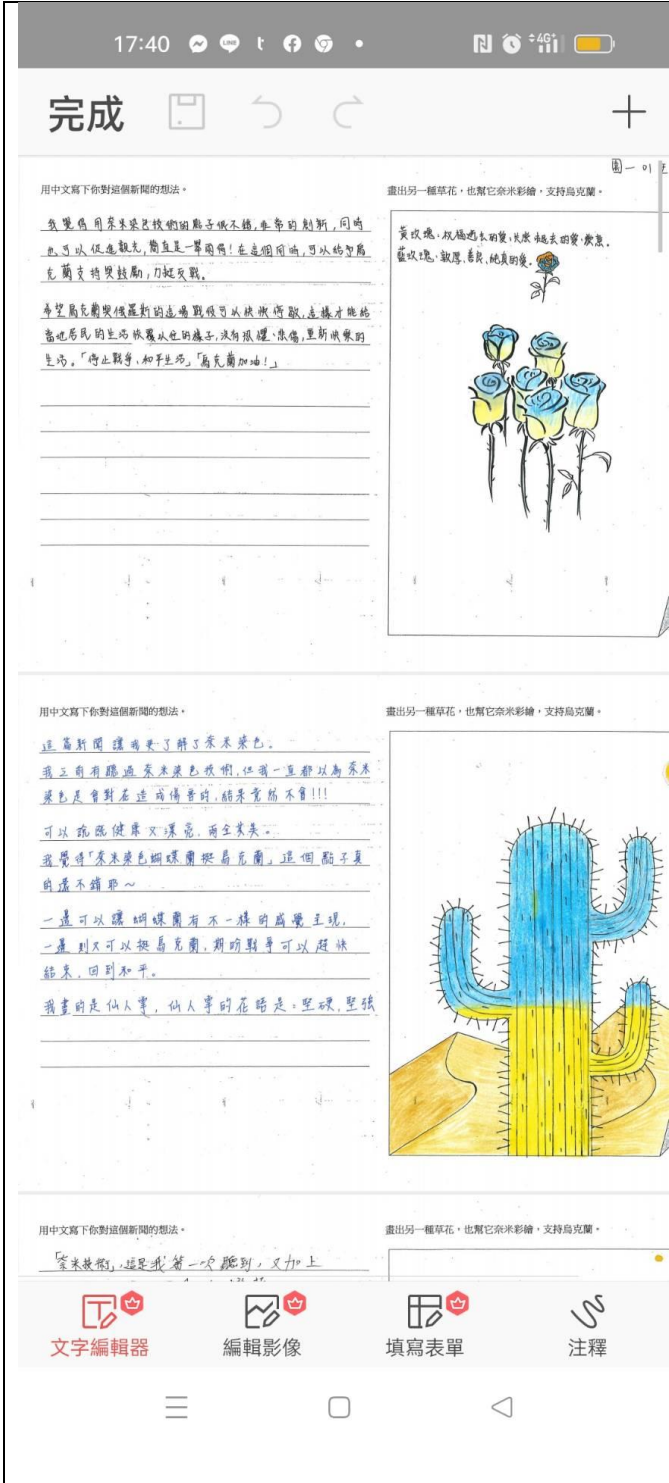 17:40
4G+
完成
圖一 01
用中文寫下你對這個新聞的想法。
我覺得用奈米染色技術的點子很不錯,非常的創新,同時
也可以促進觀光,簡直是一舉兩得!在這個同時,可以給予烏
克蘭支持與鼓勵,力挺反戰。
希望烏克蘭與俄羅斯的這場戰役可以快快停歇,這樣才能給
當地居民的生活恢覆以往的樣子,沒有恐懼、悲傷,重新快樂的
生活。「停止戰爭、和平生活」「烏克蘭加油!」
畫出另一種草花,也幫它奈米彩繪,支持烏克蘭。
黃玫瑰、祝福逝去的愛、失戀、褪去的愛、歉意。
藍玫瑰、敦厚、善良、純真的愛。
用中文寫下你對這個新聞的想法。
這篇新聞讓我更了解了奈米染色。
我之前有聽過奈米染色技術,但我一直都以為奈米
染色是會對花造成傷害的,結果竟然不會!!!
可以說既健康又漂亮,兩全其美。
我覺得「奈米染色蝴蝶蘭挺烏克蘭」這個點子真
的還不錯耶~
一邊可以讓蝴蝶蘭有不一樣的感覺呈現,
一邊則又可以挺烏克蘭,期盼戰爭可以趕快
結束,回到和平。
我畫的是仙人掌,仙人掌的花語是:堅硬,堅強
畫出另一種草花,也幫它奈米彩繪,支持烏克蘭。
用中文寫下你對這個新聞的想法。
「奈米技術」,這是我第一次聽到,又加上
畫出另一種草花,也幫它奈米彩繪,支持烏克蘭。
文字編輯器
編輯影像
填寫表單
注釋